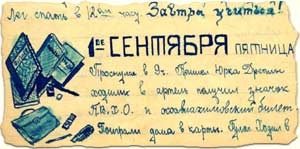 Лег спать в 12ом часу. Завтра учиться!
1ое СЕНТЯБРЯ ПЯТНИЦА
Проснулся в 9ч. Пришел Юрка
ходили в артель получил значок
П.В.Х.О. и осоавиахимовский билет
Поиграли дома в карты. Гулял Ходил в